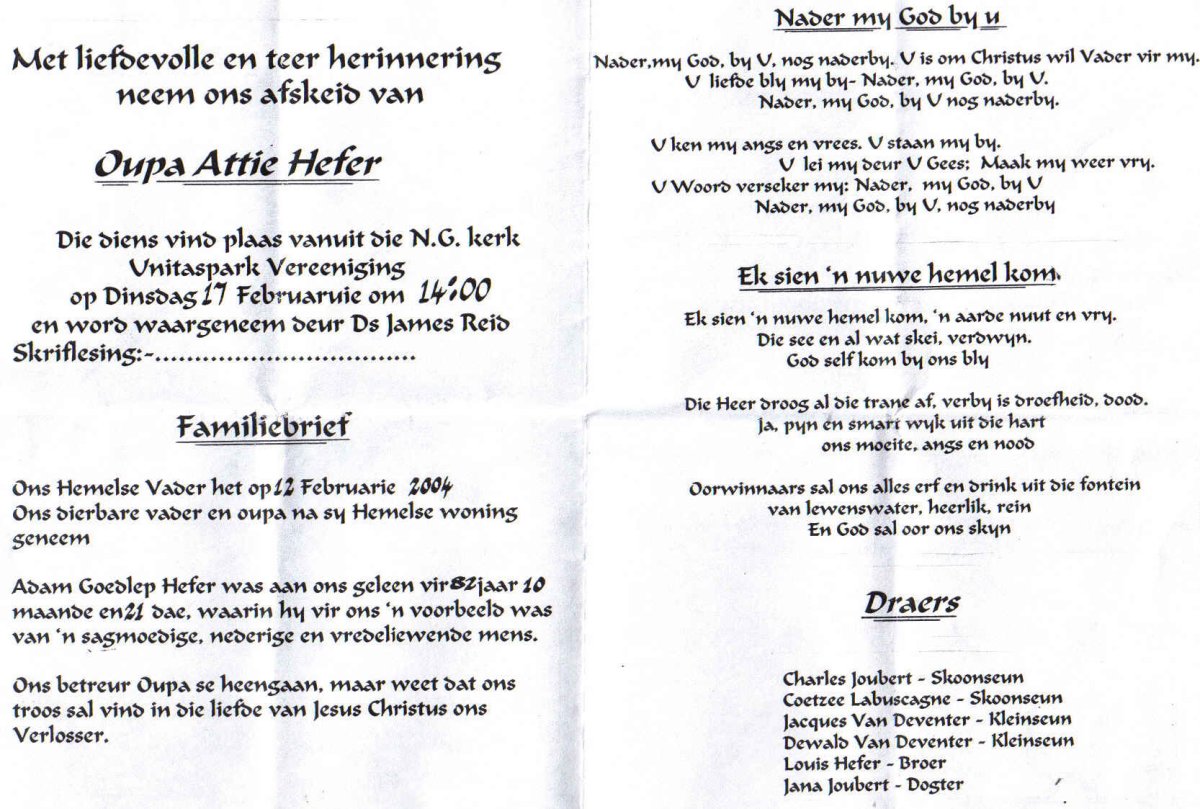 Met liefdevolle en teer herinnering
neem ons afskeid van
Oupa Attie Hefer
Die diens vind plaas vanuit die N.G. kerk
Unitaspark Vereeniging
op Dinsdag 17 Februaruie om 14:00
en word waargeneem deur Ds James Reid
Skriflesing:-.................................
Familiebrief
Ons Hemelse Vader het op 12 Februarie 2004
Ons dierbare vader en oupa na sy Hemelse woning
geneem
Adam Goedlep Hefer was aan ons geleen vir 82 jaar 10
maande en 21 dae, waarin hy vir ons 'n voorbeeld was
van 'n sagmoedige, nederige en vredeliewende mens.
Ons betreur Oupa se heengaan, maar weet dat ons
troos sal vind in die liefde van Jesus Christus ons
Verlosser.
Nader my God by u
Nader,my God, by U, nog naderby. U is om Christus wil Vader vir my.
U liefde bly my by- Nader, my God, by U.
Nader, my God, by U nog naderby.
U ken my angs en vrees. U staan my by.
U lei my deur U Gees; Maak my weer vry.
U Woord verseker my: Nader, my God, by U
Nader, my God, by U, nog naderby
Ek sien 'n nuwe hemel kom.
Ek sien 'n nuwe hemel kom, 'n aarde nuut en vry.
Die see en al wat skei, verdwyn.
God self kom by ons bly
Die Heer droog al die trane af, verby is droefheid, dood.
Ja, pyn en smart wyk uit die hart
ons moeite, angs en nood
Oorwinnaars sal ons alles erf en drink uit die fontein
van lewenswater, heerlik, rein
En God sal oor ons skyn
Draers
Charles Joubert - Skoonseun
Coetzee Labuscagne - Skoonseun
Jacques Van Deventer - Kleinseun
Dewald Van Deventer - Kleinseun
Louis Hefer - Broer
Jana Joubert - Dogter